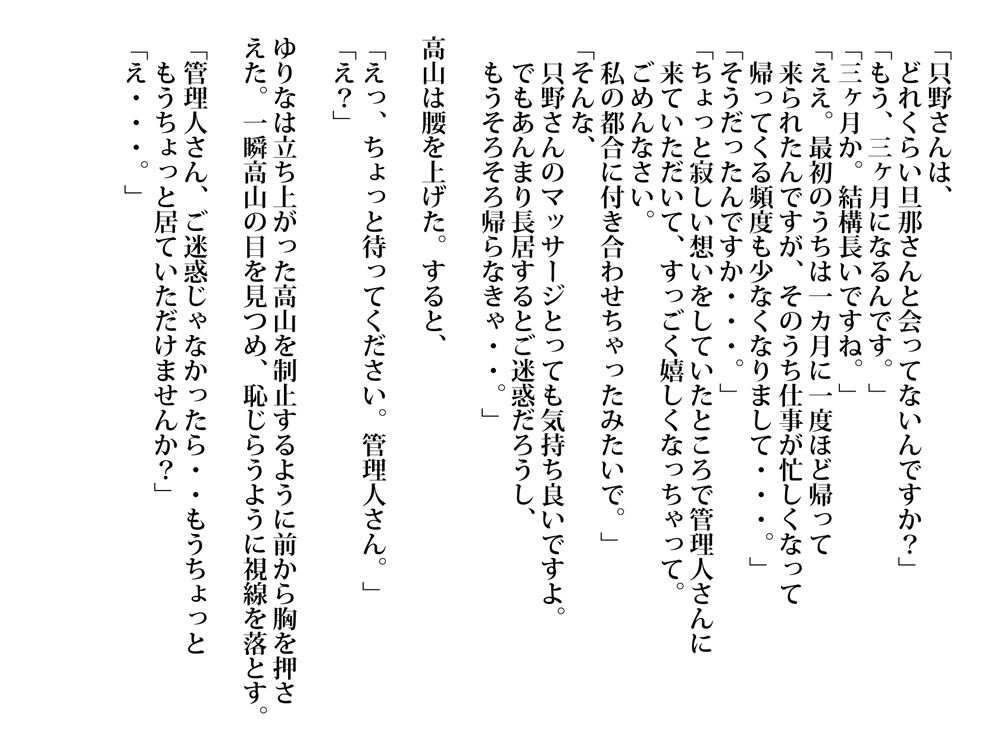 「只野さんは、
どれくらい旦那さんと会ってないんですか？」
「もう、三ヶ月になるんです。」
「三ヶ月か。結構長いですね。」
「ええ。最初のうちは一カ月に一度ほど帰って
来られたんですが、そのうち仕事が忙しくなって
帰ってくる頻度も少なくなりまして・・・。」
「そうだったんですか・・・。」
「ちょっと寂しい想いをしていたところで管理人さんに
来ていただいて、すっごく嬉しくなっちゃって。
ごめんなさい。
私の都合に付き合わせちゃったみたいで。」
「そんな、
只野さんのマッサージとっても気持ち良いですよ。
でもあんまり長居するとご迷惑だろうし、
もうそろそろ帰らなきゃ・・。」
高山は腰を上げた。すると、
「えっ、ちょっと待ってください。管理人さん。」
「え？」
ゆりなは立ち上がった高山を制止するように前から胸を押さ
えた。一瞬高山の目を見つめ、恥じらうように視線を落とす。
「管理人さん、ご迷惑じゃなかったら・・もうちょっと
もうちょっと居ていただけませんか？」
「え・・・。」